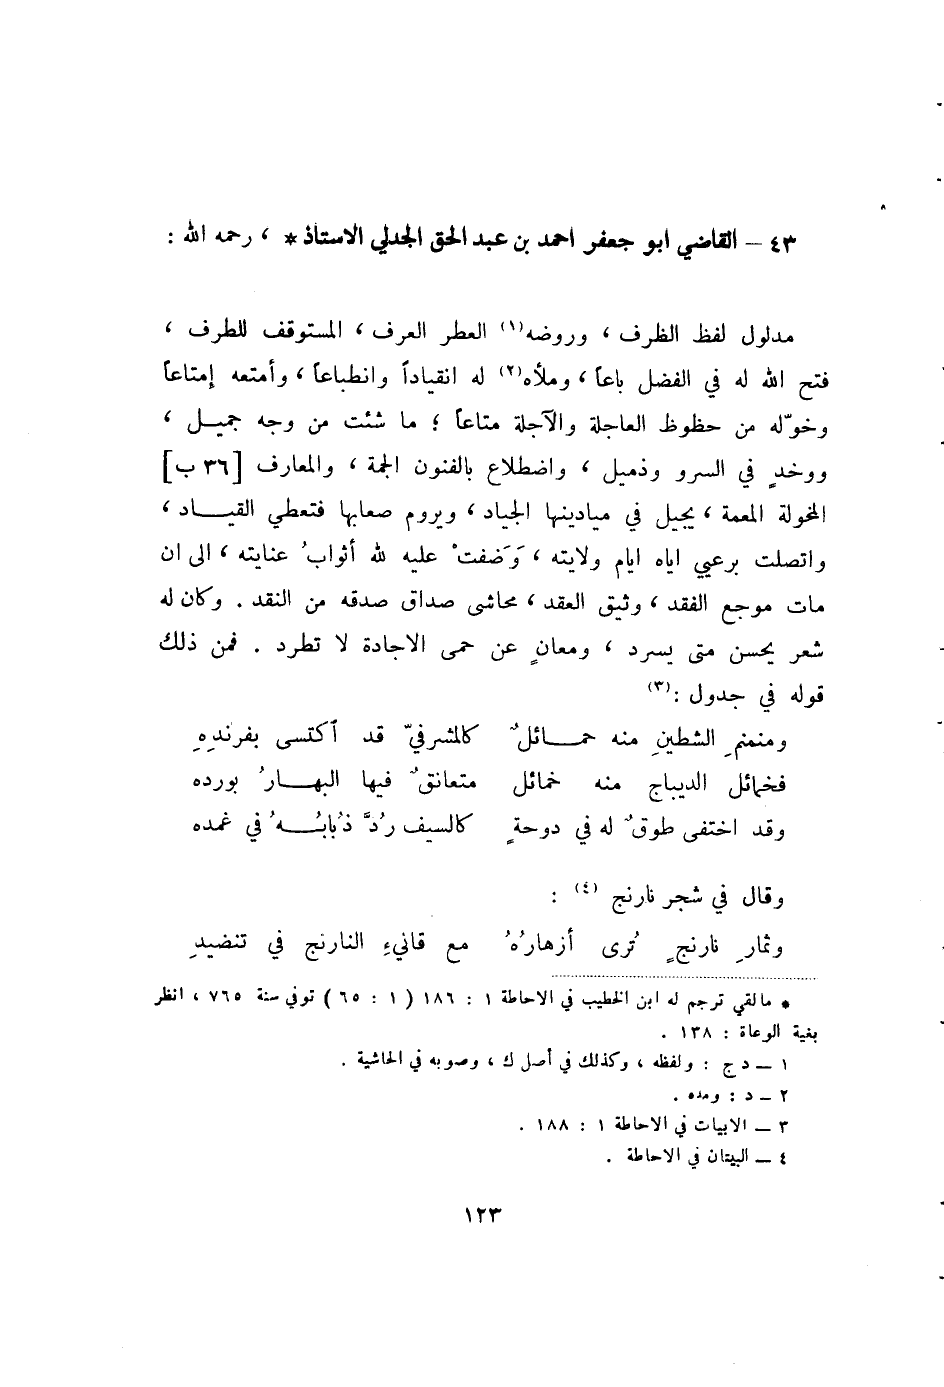 ٤٣ – القاضي ابو جعفر احمد بن عبد الحق الجدلي الاستاذ * ، رحمه الله :
مدلول لفظ الظرف ، وروضه(١) العطر العرف ، المستوقف للطرف ،
فتح الله له في الفضل باعاً ، وملأه(٢) له انقياداً وانطباعاً ، وأمتعه إمتاعاً
وخوّله من حظوظ العاجلة والآجلة متاعاً ؛ ما شئت من وجه جميـل ،
ووخدٍ في السرو وذميل ، واضطلاع بالفنون الجمة ، والمعارف [٣٦ ب]
المخولة المعمة ، يجيل في ميادينها الجياد ، ويروم صعابها فتعطي القيـــاد ،
واتصلت برعيي اياه ايام ولايته ، وَضَفتْ عليه لله أثوابُ عنايته ، الى ان
مات موجع الفقد ، وثيق العقد ، محاشى صداق صدقه من النقد . وكان له
شعر يحسن متى يسرد ، ومعانٍ عن حمى الاجادة لا تطرد . فمن ذلك
قوله في جدول :(٣)
ومنمنمِ الشطينِ منه حمـــائلٌ كالمشرفيّ قد اكتسى بفرندِهِ
فخمائل الديباج منه خمائل متعانقٌ فيها البهـــارُ بورده
وقد اختفى طوقٌ له في دوحةٍ كالسيف رُدَّ ذُبابُـــهُ في غمده
وقال في شجر نارنج (٤) :
وثمارِ نارنجٍ تُرى أزهارُهُ مع قانيءِ النارنج في تنضيدِ
* مالقي ترجم له ابن الخطيب في الاحاطة ١ : ١٨٦ ( ١ : ٦٥ ) توفي سنة ٧٦٥ ، انظر
بغية الوعاة : ١٣٨ .
١ – د ج : ولفظه ، وكذلك في أصل ك ، وصوبه في الحاشية .
٢ – د : ومده .
٣ – الابيات في الاحاطة ١ : ١٨٨ .
٤ – البيتان في الاحاطة .
١٢٣